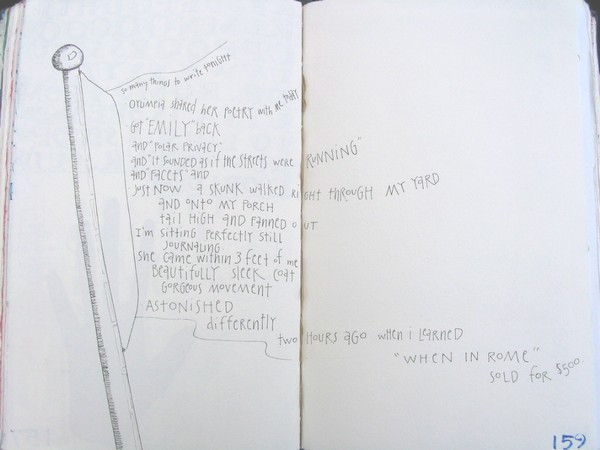 so many things to write tonight
Olympia shared her poetry with me today
Got "EMILY" back
and "POLAR PRIVACY"
and "It sounded as if the streets were RUNNING"
and "FACETS" and
just NOW a skunk walked RIGHT through MY YARD
and onto MY PORCH
tail HIGH and fanned out
I'm sitting perfectly still
journaling
she came within 3 feet of me
Beautifully sleek coat
Gorgeous movement
ASTONISHED
differently
two HOURS ago when i learned
"WHEN IN ROME"
SOLD FOR $500
159